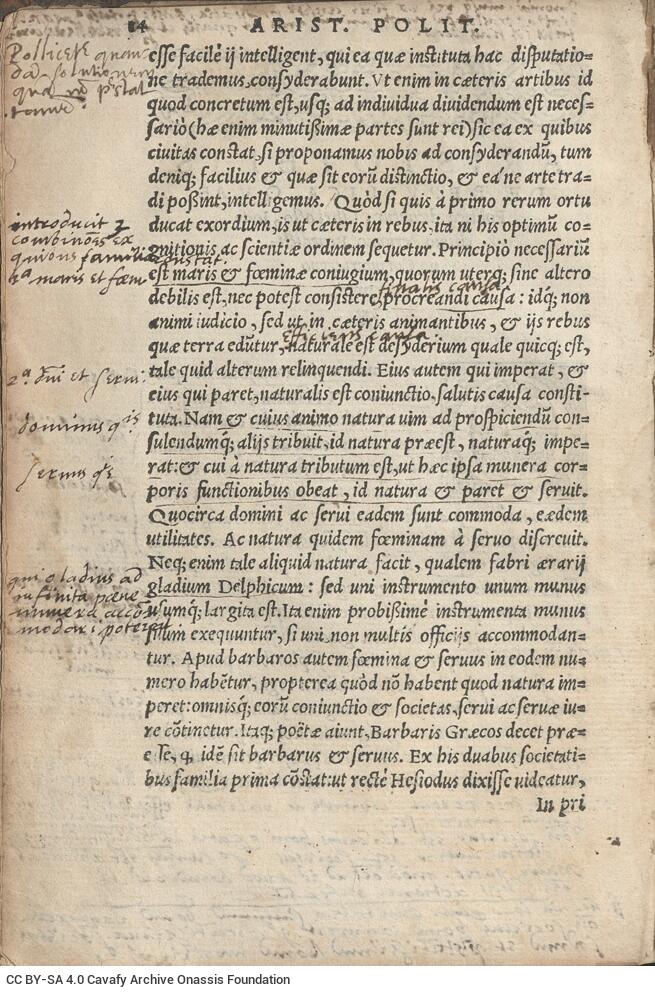 14 ARIST. POLIT.
esse facile ij intelligent, qui ea quæ instituta hac disputatio=
ne trademus, consyderabunt. Vt enim in cæteris artibus id
quod concretum est, usq; ad indiuidua diuidendum est neces=
sariò (hæ enim minutißimæ partes sunt rei) sic ea ex quibus
ciuitas constat, si proponamus nobis ad consyderandũ, tum
deniq; facilius & quæ sit eorũ distinctio, & ea'ne arte tra=
di poßint, intelligemus. Quòd si quis à primo rerum ortu
ducat exordium, is ut cæteris in rebus, ita ni his optimũ co=
gnitionis ac scientiæ ordinem sequetur. Principiò necessariũ
est maris & fœminæ coniugium, quorum uterq; sine altero
debilis est, nec potest consistere, procreandi causa: idq; non
animi iudicio, sed ut in cæteris animantibus, & ijs rebus
quæ terra edũtur, naturale est desyderium quale quicq; est,
tale quid alterum relinquendi. Eius autem qui imperat, &
eius qui paret, naturalis est coniunctio salutis causa consti-
tuta. Nam & cuius animo natura uim ad prospiciendũ con=
sulendumq; alijs tribuit, id natura præest, naturaq; impe=
rat: & cui à natura tributum est, ut hæc ipsa munera cor=
poris functionibus obeat, id natura & paret & seruit.
Quocirca domini ac serui eadem sunt commoda, eædem
utilitates. Ac natura quidem fœminam à seruo discreuit.
Neq; enim tale aliquid natura facit, qualem fabri ærarij
gladium Delphicum: sed uni instrumento unum munus
usumq; largita est. Ita enim probißimè instrumenta munus
suum exequuntur, si uni non multis officijs accommodan=
tur. Apud barbaros autem fœmina & seruus in eodem nu=
mero habẽtur, propterea quòd nõ habent quod natura im=
peret: omnisq; eorũ coniunctio & societas, serui ac seruæ iu=
re cõtinetur. Itaq; poëtæ aiunt, Barbaris Græcos decet præ=
esse, q, idẽ sit barbarus & seruus. Ex his duabus societati=
bus familia prima cõstat: ut rectè Hesiodus dixisse uideatur,
In pri
introducit 2
combinões ex
quibus familia
constat.
1ª maris et fœm
finalis causa
efficiens causa
2ª dñi et serui
dominus qis
seruus qs
qui gladius ad
infinita pæne
munera accom
modari poterat
CC BY-SA 4.0 Cavafy Archive Onassis Foundation